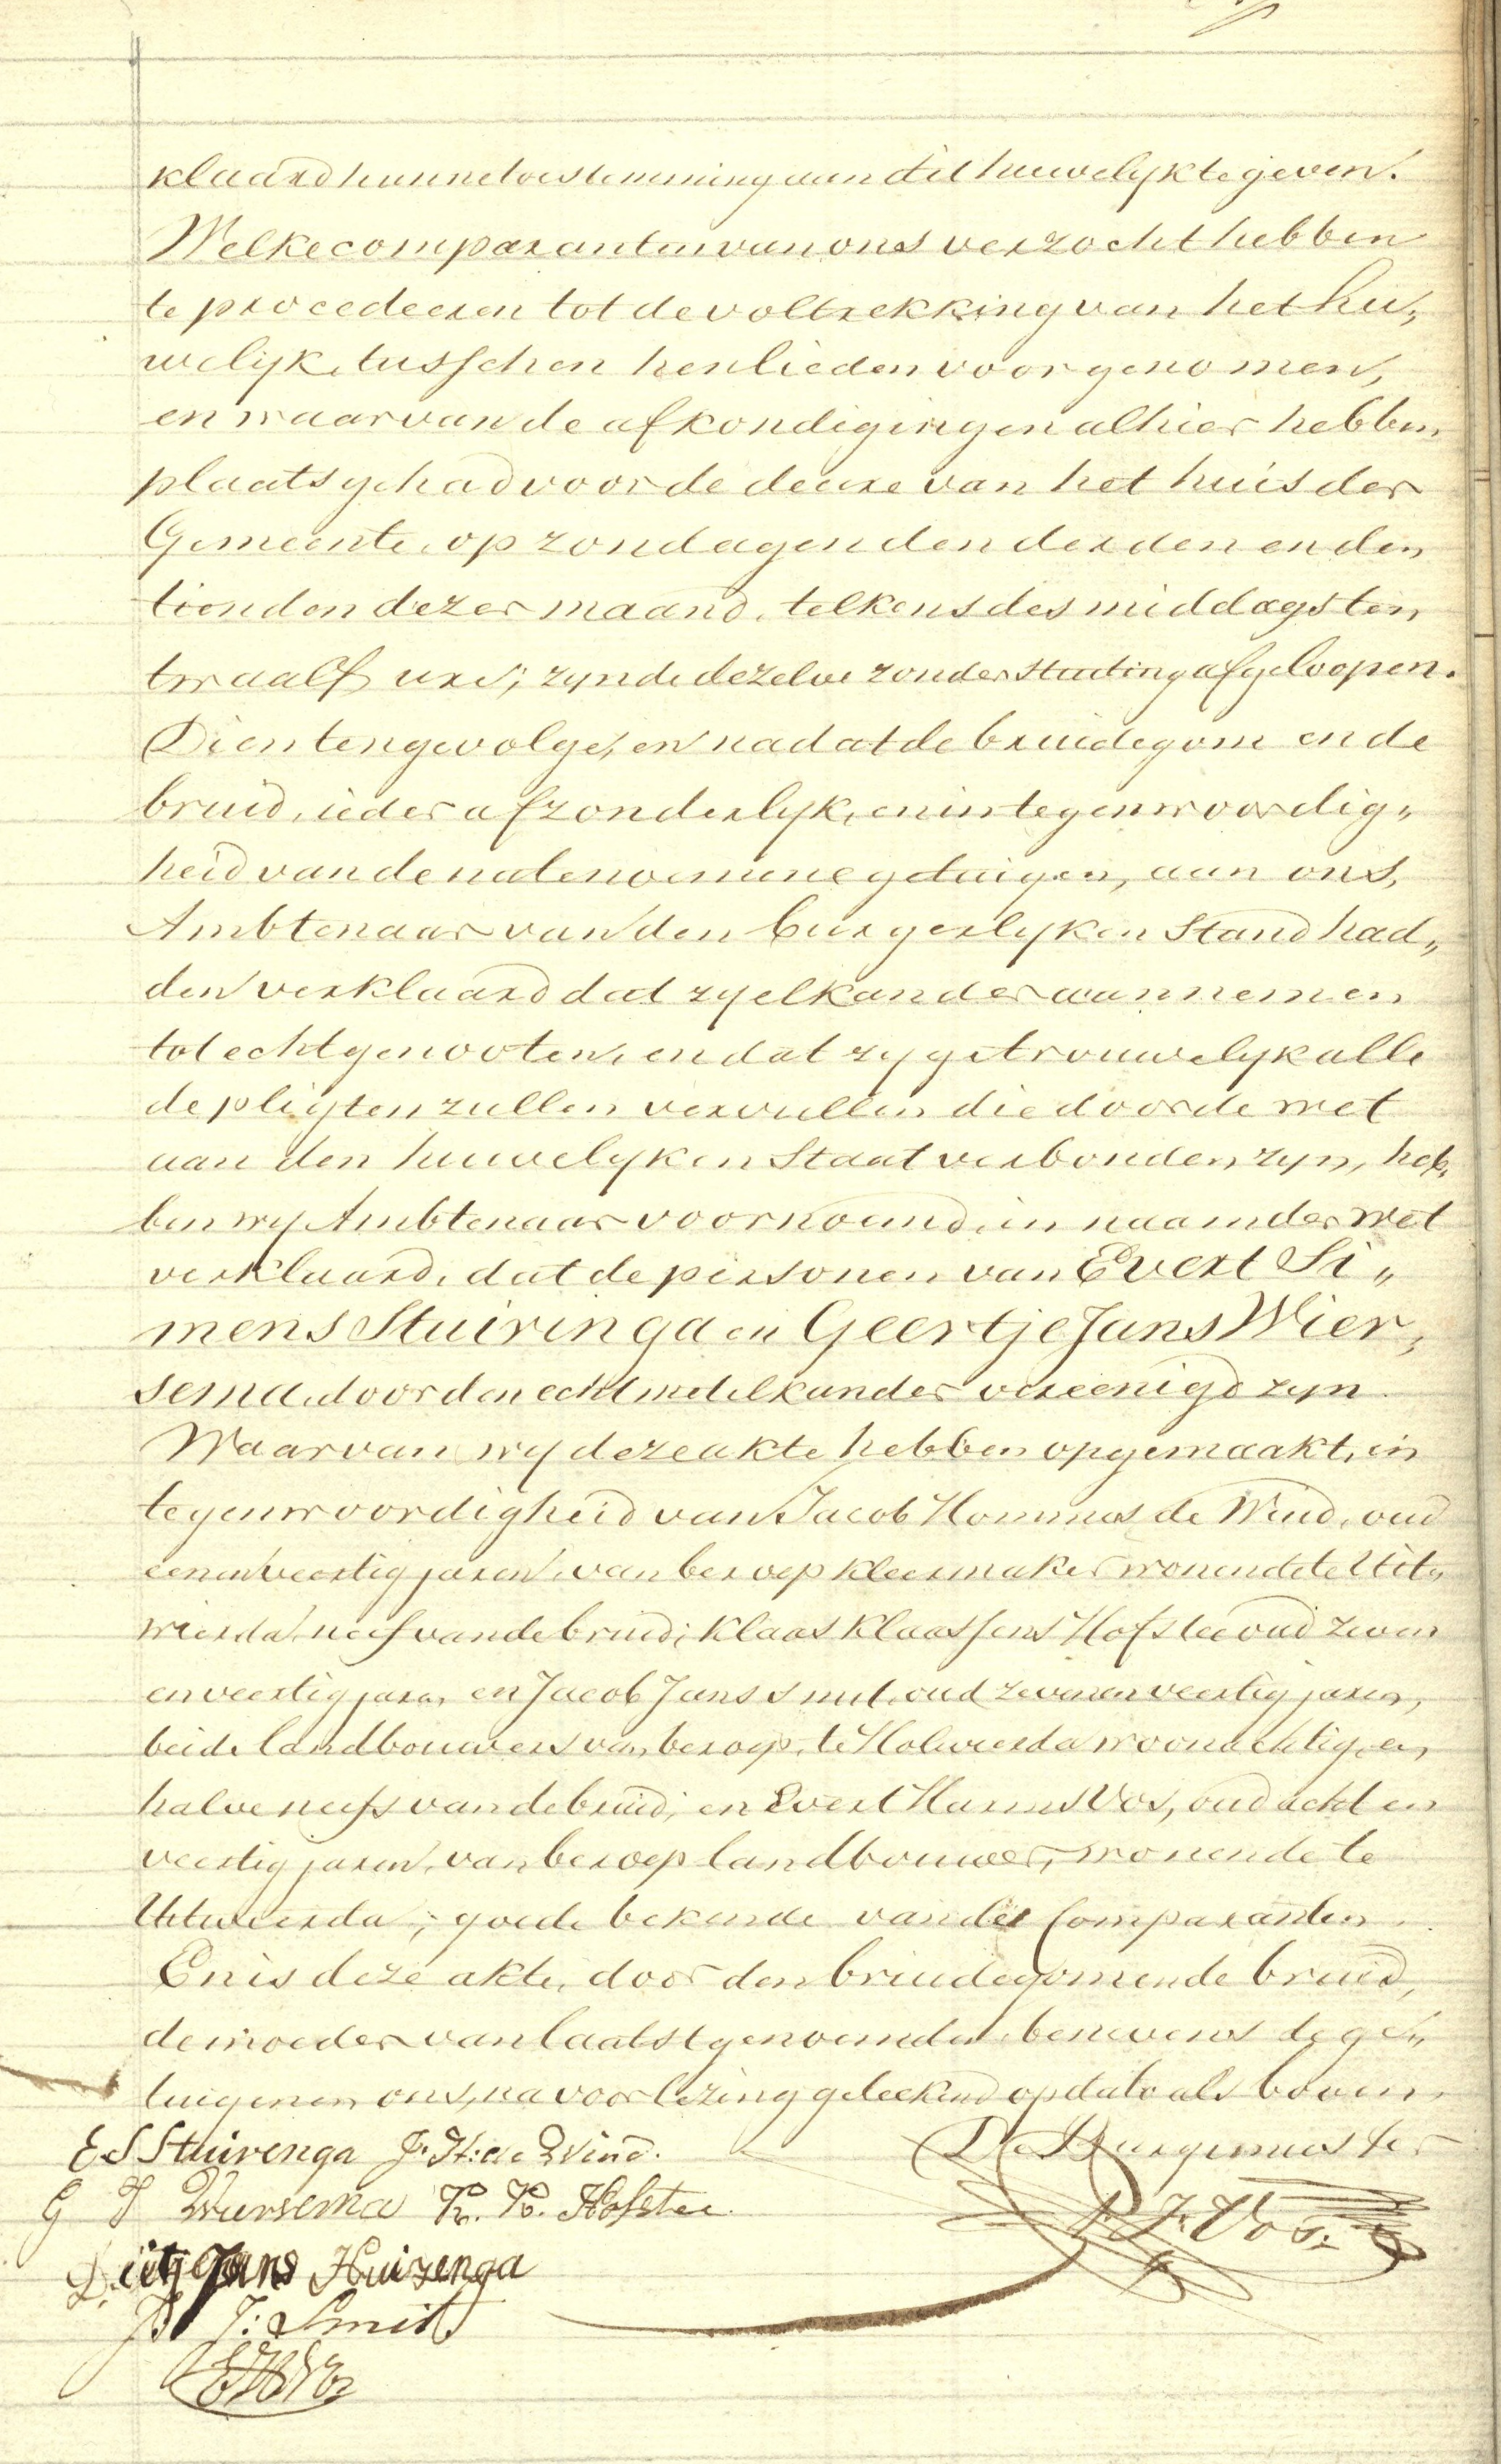 klaard hunne toestemming aan dit huwelyk te geven.
Welke comparanten van ons verzocht hebben
te procedeeren tot de voltrekking van het hu„
welijk, tusschen henlieden voorgenomen,
en waarvan de afkondigingen alhier hebben
plaats gehad voor de deure van het huis der
Gemeente, op zondagen den derden en den
tienden dezer maand, telkens des middags ten
twaalf ure; zynde dezelve zonder stuiting afgeloopen.
Dientengevolge, en nadat de bruidegom en de
bruid, ieder afzonderlyk, en in tegenwoordig„
heid van de natenoemene getuigen, aan ons,
Ambtenaar van den burgerlyken Stand had„
den verklaard dat zy elkander aannemen
tot echtgenooten, en dat zy getrouwelyk alle
de pligten zullen vervullen die door de wet
aan den huwelyken Staat verbonden zyn, heb„
ben wy Ambtenaar voornoemd, in naam der wet
verklaard, dat de personen van Evert Si„
mens Stuiringa en Geertje Jans Wier„
sema, door den echt met elkander vereenigd zyn.
Waarvan wy deze akte hebben opgemaakt, in
tegenwoordigheid van Jacob Hommes de Wind, oud
eenenveertig jaren, van beroep kleermaker wonende te Uit„
wierda, neef van de bruid; Klaas Klaassens Hofstee oud zeven
enveertig jaren, en Jacob Jans Smit, oud zevenenveertig jaren,
beide landbouwers van beroep, te Holwierda woonachtig, en
halve neefs van de bruid; en Evert Harms Vos, oud acht en
veertig jaren, van beroep landbouwer, wonende te
Uitwierda; goede bekende van de Comparanten.
En is deze akte, door den bruidegom en de bruid,
de moeder van laatstgenoemde, benevens de ge„
tuigen en ons, na voorlezing geteekend op dato als boven.
E S Stuivenga J. H: de Wind. De Burgemeester
G J Wiersema K. K. Hofstee. P. J. Vos.
Jans Huizenga
J: Smit